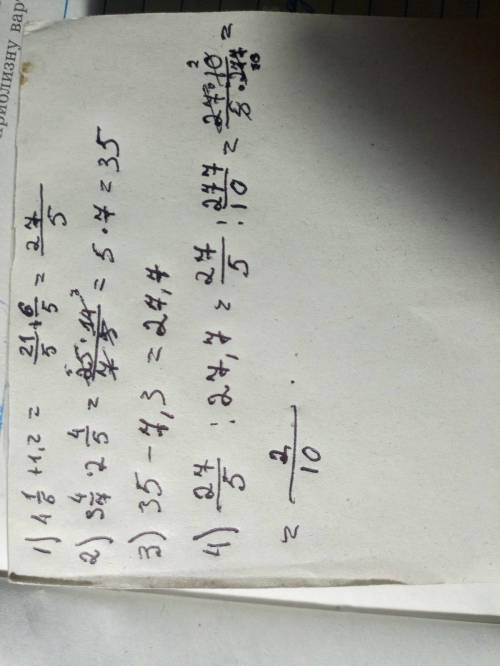 приблизну
1) 4 1/5 + 1,2 = 21/5 + 6/5 = 27/5
2) 3 4/7 · 2 4/5 = 25 · 14 / 7 · 5 = 5 · 7 = 35
3) 35 - 7,3 = 27,7
4) 27/5 : 27,7 = 27/5 : 277/10 = 27 · 10 / 5 · 277 =
= 2/10 .